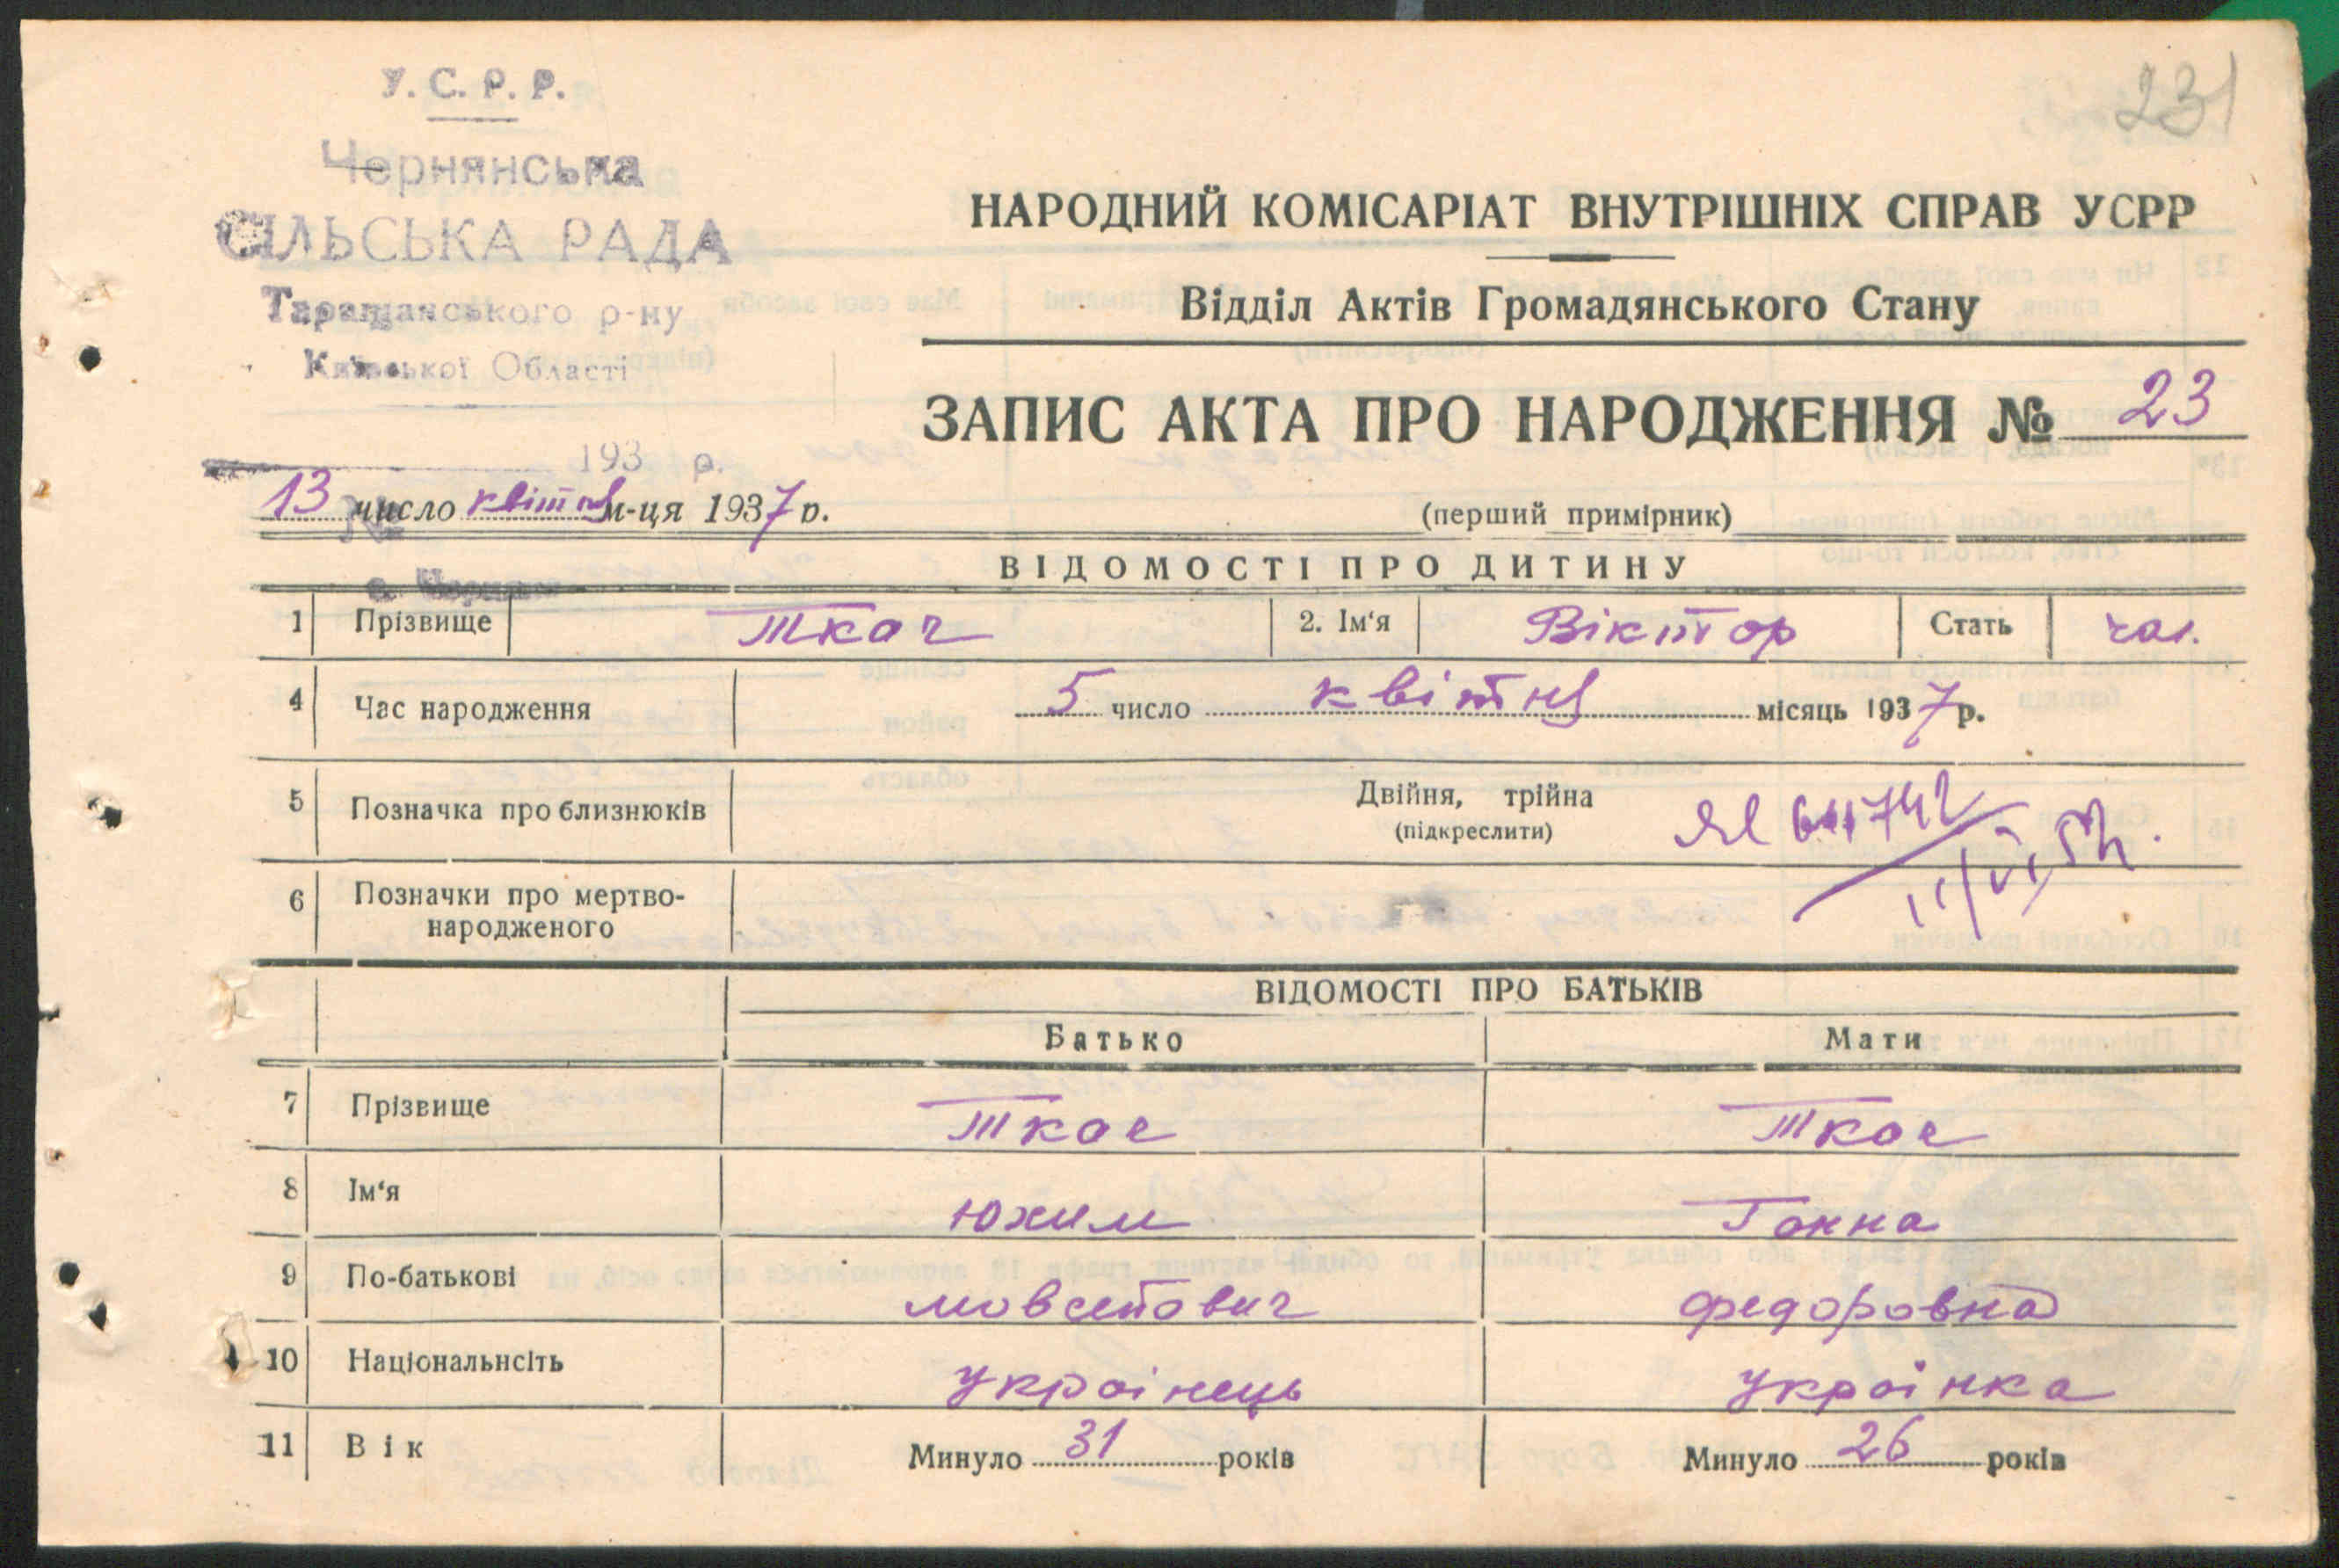 231
У. С. Р. Р.
Чернянська
СІЛЬСЬКА РАДА
Таращанського р-ну
Київської Області
193 р.
№
с. Чернин
НАРОДНИЙ КОМІСАРІАТ ВНУТРІШНІХ СПРАВ УСРР
Відділ Актів Громадянського Стану
ЗАПИС АКТА ПРО НАРОДЖЕННЯ № 23
13 число квітня м-ця 1937 р.
(перший примірник)
ВІДОМОСТІ ПРО ДИТИНУ
1 Прізвище Ткач 2. Ім'я Віктор Стать чол.
4 Час народження 5 число квітня місяць 1937 р.
5 Позначка про близнюків Двійня, трійна
(підкреслити)
6 Позначки про мертво-
народженого
ВІДОМОСТІ ПРО БАТЬКІВ
Батько Мати
7 Прізвище Ткач Ткач
8 Ім'я Юхим Ганна
9 По-батькові Мовсейович Федоровна
10 Національнсіть Українець Українка
11 Вік Минуло 31 років Минуло 26 років